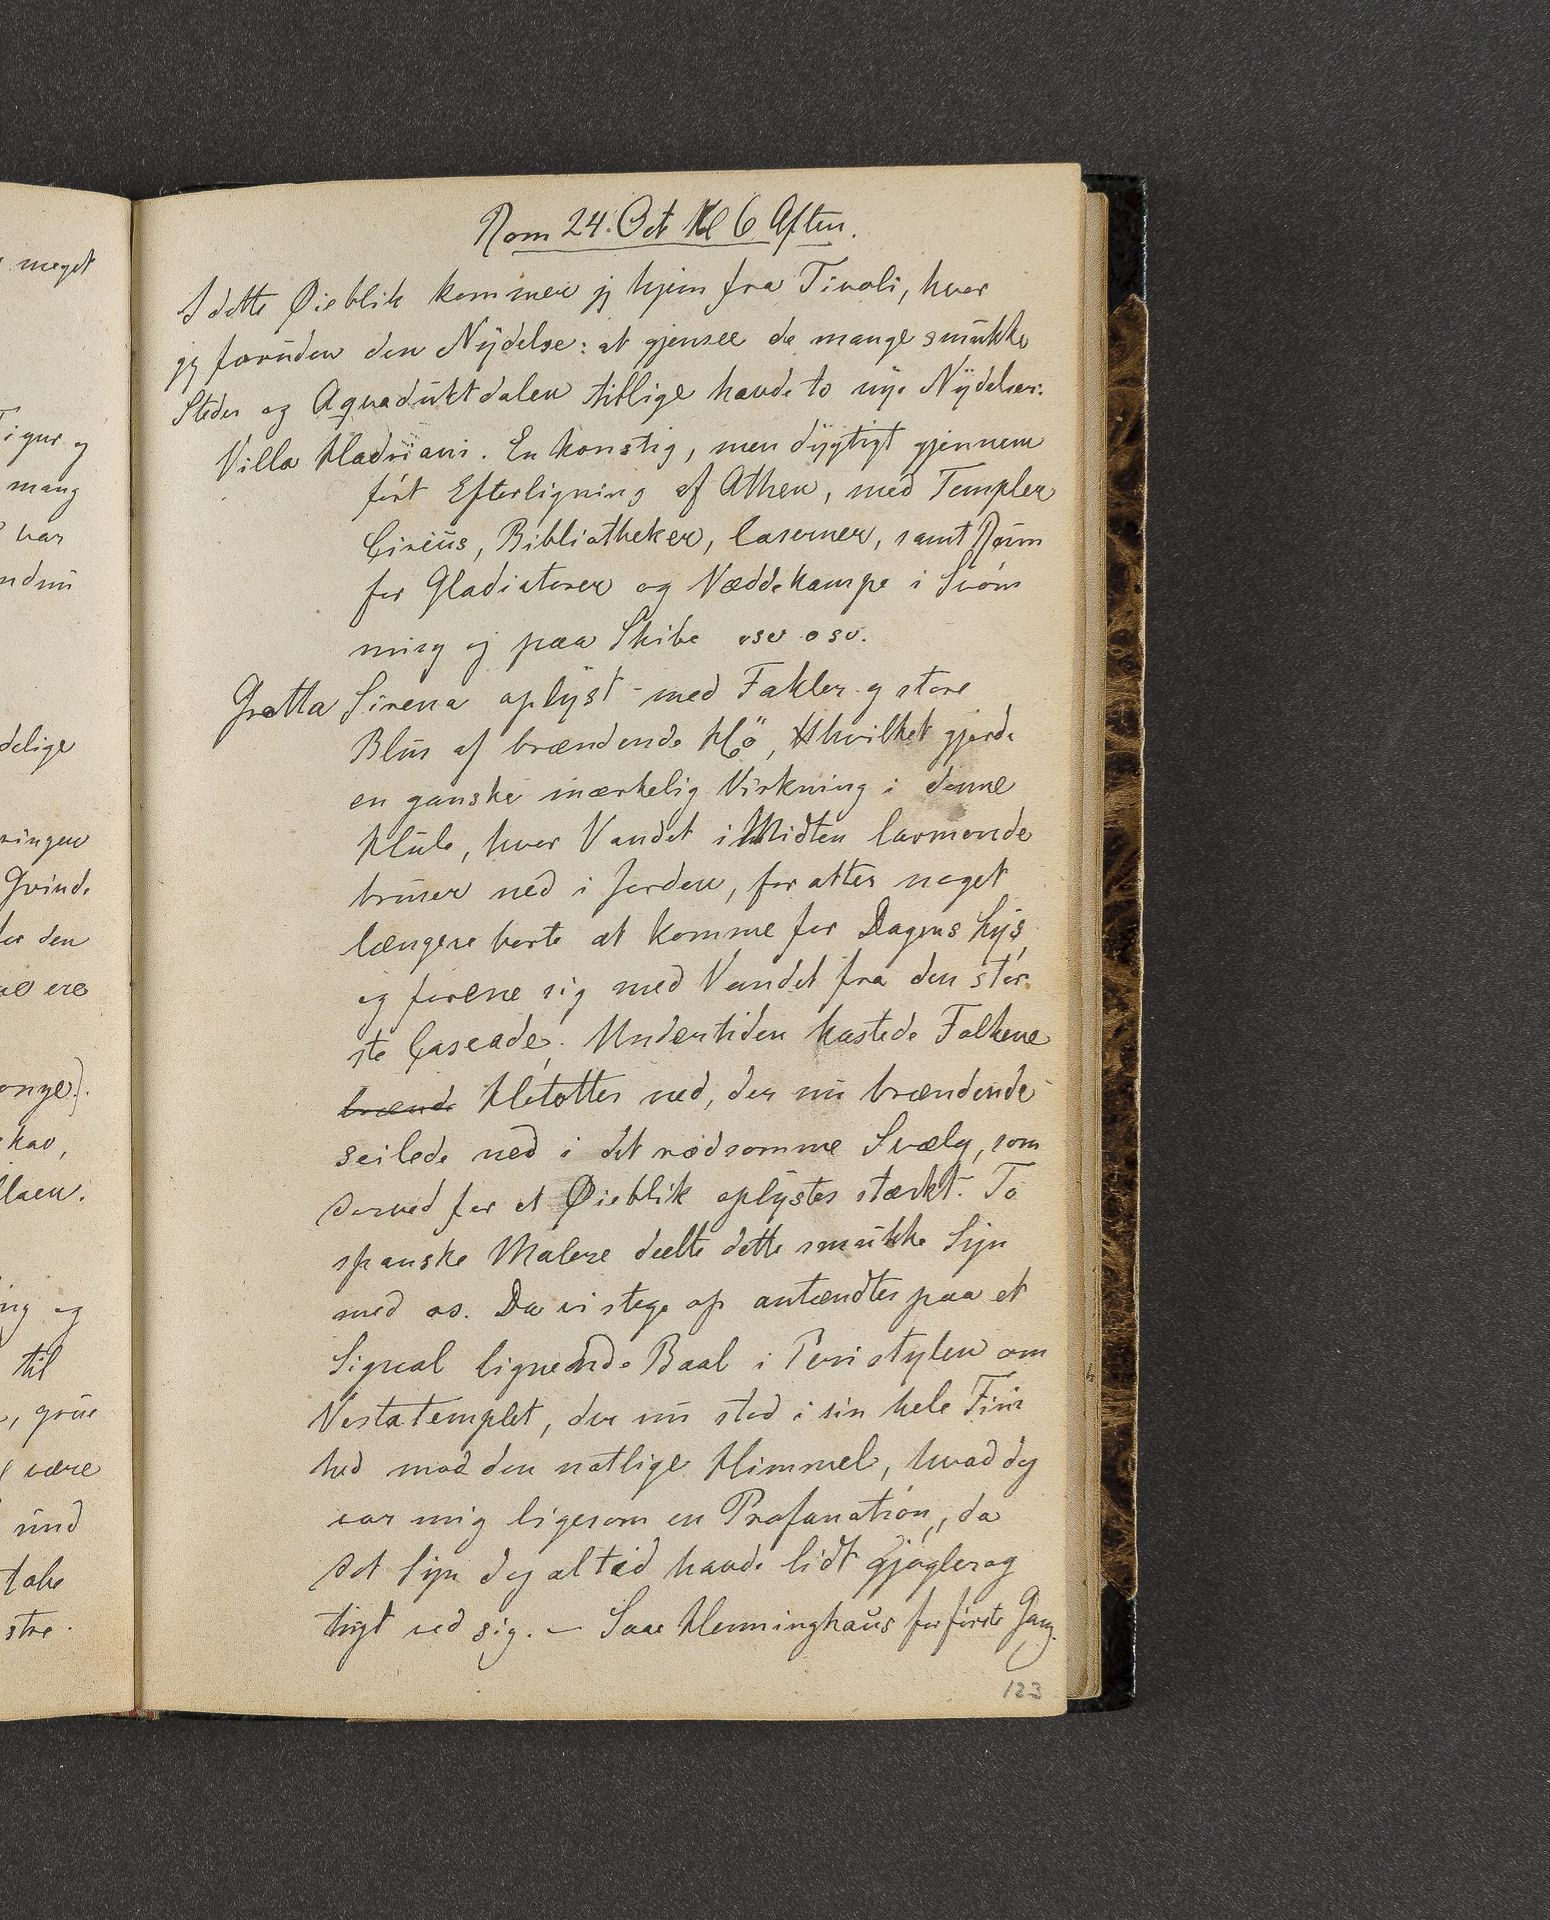 Rom 24. Oct Kl 6 Aften.
I dette Øieblik kommer jeg hjem fra Tivoli, hvor
jeg foruden den Nydelse: at gjensee de mange smukke
Steder og Aquaduktdalen tillige havde to nye Nydelser:
Villa Hadriani. En konstig, men dygtigt gjennem
ført Efterligning af Athen, med Templer
Circus, Bibliotheker, Caserner, samt Rum
for Gladiatorer og Væddekampe i Svøm
ning og paa Skibe osv osv.
Grotta Sirena oplyst med Fakler og store
Blus af brændende Hø, hvilket gjorde
en ganske mærkelig Virkning i denne
Hule, hvor Vandet i Midten larmende
bruser ned i Jorden, for atter noget
længere borte at komme for Dagens Lys,
og forene sig med Vandet fra den stør
ste Cascade. Undertiden kastede Folkene
brænde Høtotter ned, der nu brændende
seilede ned i det rædsomme Svælg, som
derved for et Øieblik oplystes stærkt. To
spanske Malere deelte dette smukke Syn
med os. Da vi stege op antændtes paa et
Signal lignende Baal i Peristylen om
Vestatemplet, der nu stod i sin hele Fiin
hed mod den natlige Himmel, hvad dog
var mig ligesom en Profanation, da
det Syn dog altid havde lidt gjøgleragtigt
tigt ved sig. – Saae Henninghaus for første Gang.
123
meget
Figur og
mang
var
delige
ringen
Qvinde
den
ere
skav,
og
til
grue
være
und
stre.